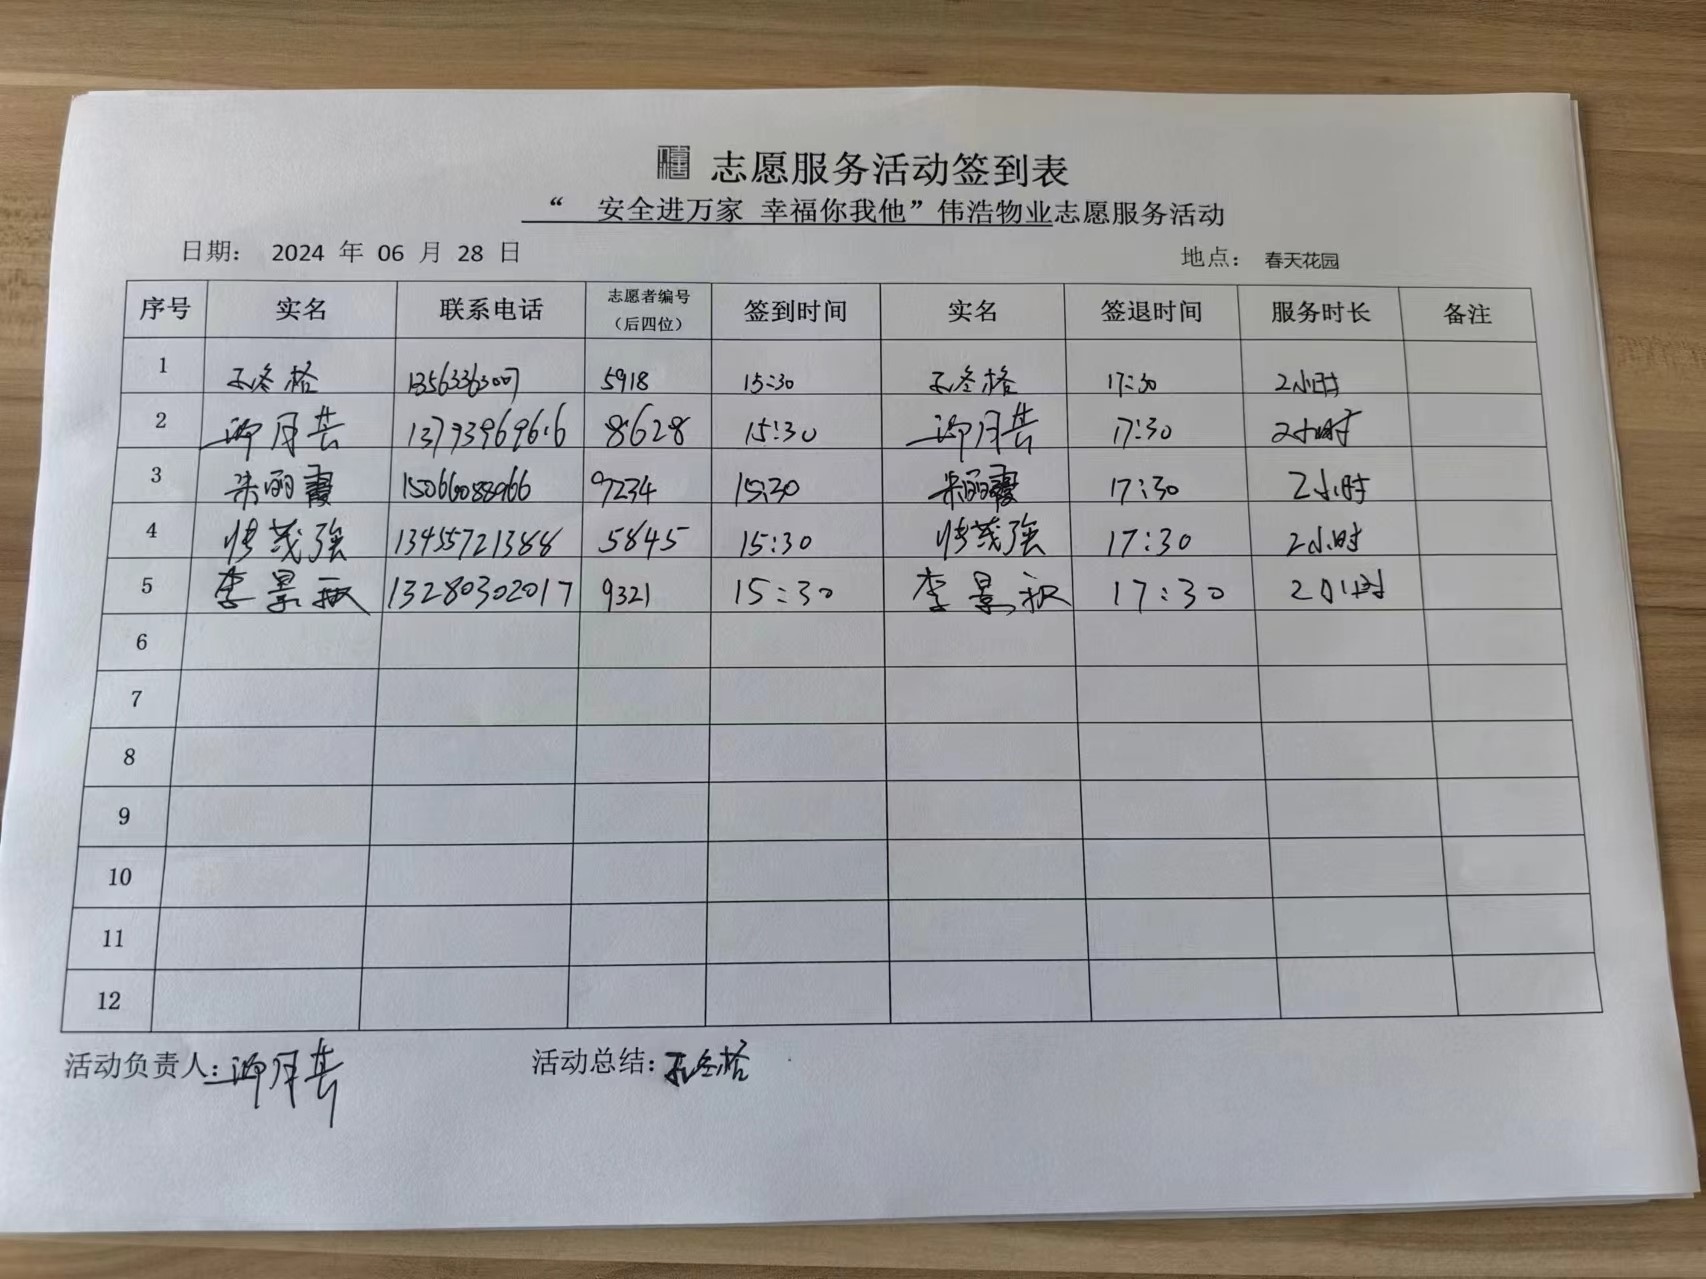 志愿服务活动签到表
“ 安全进万家 幸福你我他”伟浩物业志愿服务活动
日期： 2024 年 06 月 28 日 地点： 春天花园
序号 实名 联系电话 志愿者编号（后四位） 签到时间 实名 签退时间 服务时长 备注
1 13563363007 5918 15:30 17:30 2小时
2 13793969616 8628 15:30 17:30 2小时
3 9234 15:30 17:30 2小时
4 13455721388 5845 15:30 17:30 2小时
5 13280302017 9321 15:30 17:30 2小时
6
7
8
9
10
11
12
活动负责人： 活动总结：